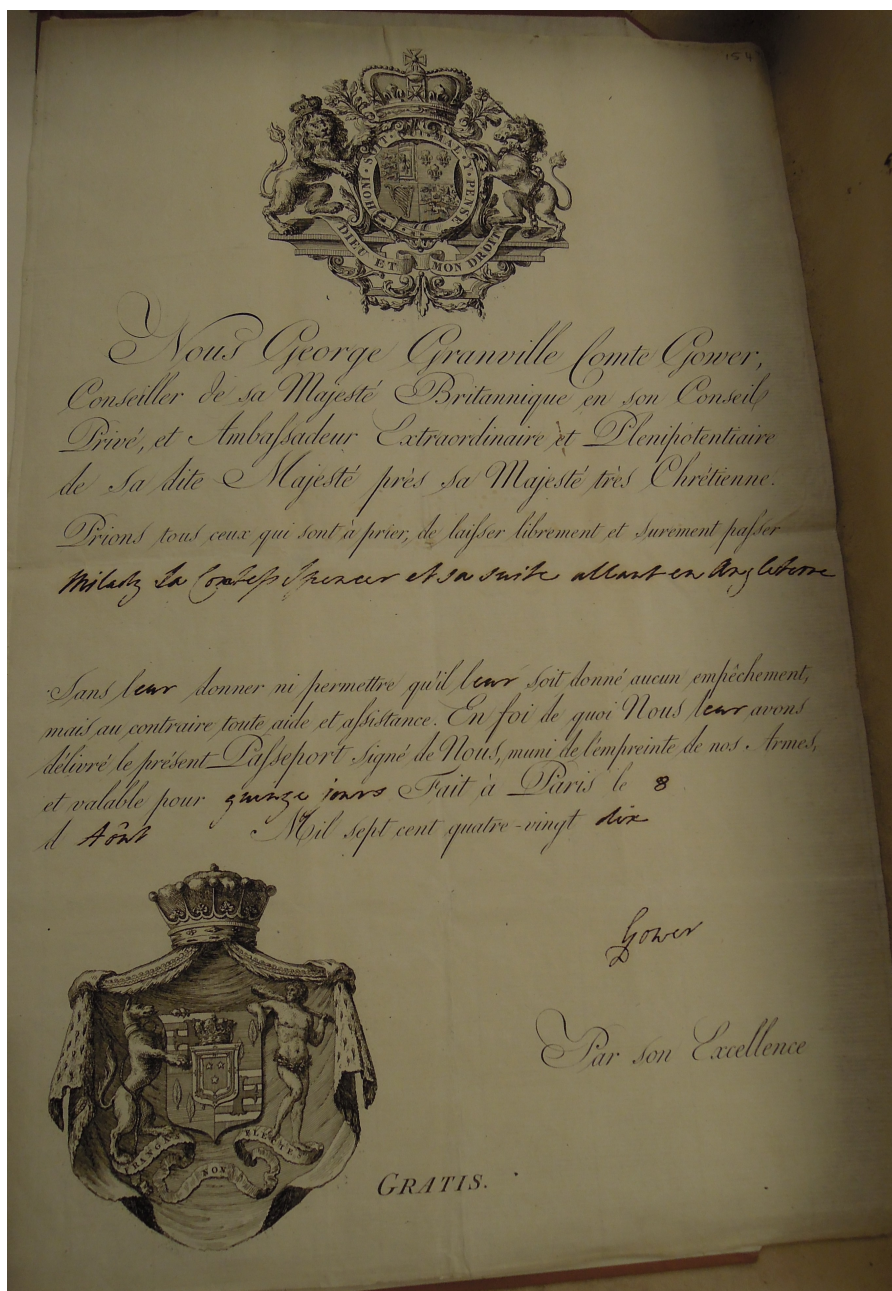 154
HONI · SOIT · MAL · Y · PENSE
DIEU ET MON DROIT
Nous George Granville Comte Gower,
Conseiller de sa Majesté Britannique en son Conseil
Privé, et Ambaſsadeur Extraordinaire et Plenipotentiaire
de Sa dite Majesté près sa Majesté très Chrétienne.
Prions tous ceux qui sont à prier, de laiſser librement et surement paſser
Milady La Comtesse Spencer et sa suite allant en Angleterre
Sans leur donner ni permettre qu'il leur soit donné aucun empêchement,
mais au contraire toute aide et aſsistance. En foi de quoi Nous leur avons
délivré le présent Paſseport signé de Nous, muni de l'empreinte de nos Armes,
et valable pour quinze jours Fait à Paris le 8
d Aôut Mil sept cent quatre-vingt dix
Gower
Par son Excellence
FRANGAS NON FLECTES
GRATIS.